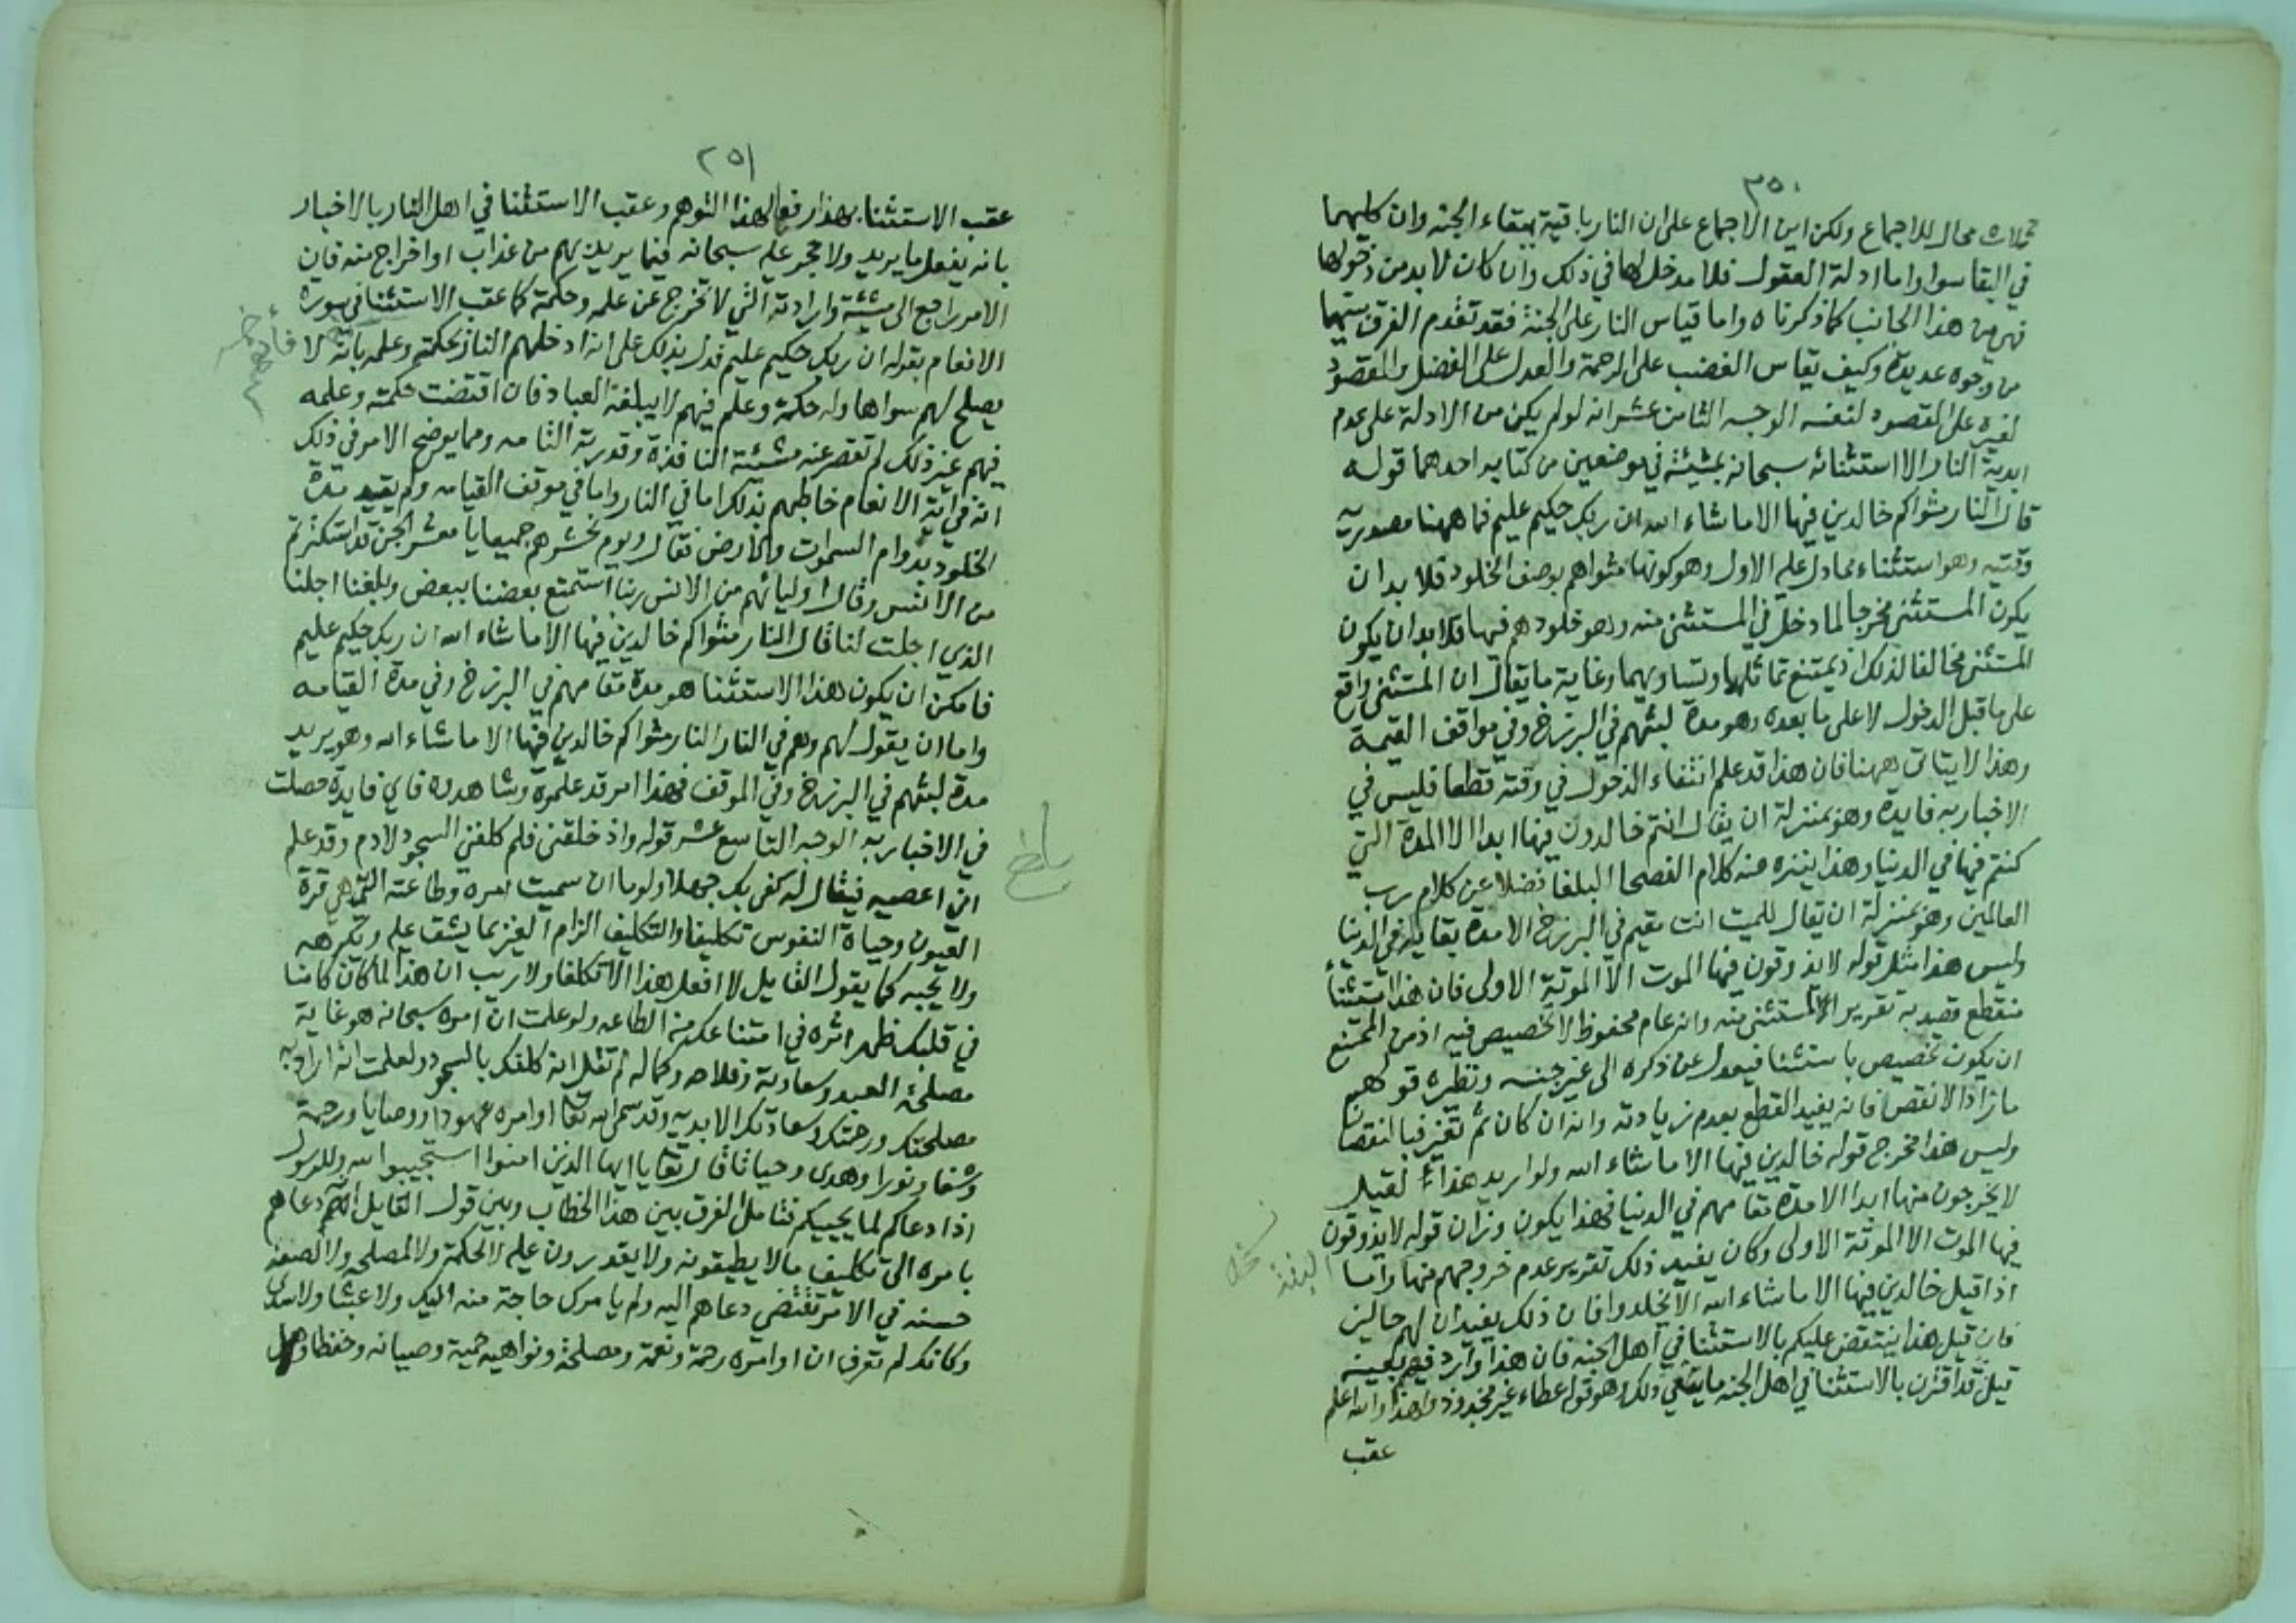 ٣٥٠
محال للاجماع ولكن اين الاجماع على ان النار باقية ببقاء الجنه وان كليهما
في البقا سوا واما ادلة العقول فلا مدخل لها في ذلك وان كان لا بد من دخولها
فهي من هذا الجانب كما ذكرناه واما قياس النار على الجنة فقد تقدم الفرق بينهما
من وجوه عديدة وكيف يقاس الغضب على الرحمة والعدل على الفضل والمقصود
لغيره على المقصود لنفسه الوجه الثامن عشر انه لو لم يكن من الادلة على عدم
ابدية النار الا استثنائه سبحانه بمشيئته في موضعين من كتابه احدهما قوله
قال النار مثواكم خالدين فيها الا ما شاء الله ان ربك حكيم عليم فما ههنا مصدريه
وقتيه وهو استثناء مما دل عليه الاول وهو كونها مثواهم بوصف الخلود فلا بد ان
يكون المستثنى مخرجا لما دخل في المستثنى منه وهو خلودهم فيها فلا بد ان يكون
المستثنى مخالفا لذلك اذ يمتنع تماثلهما وتساويهما وغاية ما يقال ان المستثنى واقع
على ما قبل الدخول لا على ما بعده وهو مدة لبثهم في البرزخ وفي مواقف القيمة
وهذا لا يتاتى ههنا فان هذا قد علم انتفاء الدخول في وقته قطعا فليس في
الاخبار به فايده وهو بمنزلة ان يقال انتم خالدون فيها ابدا الا المدة التي
كنتم فيها في الدنيا وهذا ينزه عنه كلام الفصحا البلغا فضلا عن كلام رب
العالمين وهو بمنزلة ان يقال للميت انت مقيم في البرزخ الا مدة بقايك في الدنيا
وليس هذا مثل قوله لا يذوقون فيها الموت الا الموتة الاولى فان هذا استثنا
منقطع قصد به تقرير المستثنى منه وانه عام محفوظ لا تخصيص فيه اذ من الممتنع
ان يكون تخصيص باستثنا فيعدل عن ذكره الى غير جنسه ونظيره قولهم
ما زاد الا نقص فانه يفيد القطع بعدم زيادته وانه ان كان ثم تغير فبالنقصان
وليس هذا مخرج قوله خالدين فيها الا ما شاء الله ولو اريد هذا لقيل
لا يخرجون منها ابدا الا مدة مقامهم في الدنيا فهذا يكون وزان قوله لا يذوقون
فيها الموت الا الموتة الاولى وكان يفيد ذلك تقرير عدم خروجهم منها واما
اذا قيل خالدين فيها الا ما شاء الله الا يخلدوا فان ذلك يفيد ان لهم حالين
فان قيل هذا ينتقض عليكم بالاستثنا في اهل الجنه فان هذا وارد فيهم بعينه
قيل قد اقترن بالاستثنا في اهل الجنه ما ينفي ذلك وهو قوله عطاء غير مجذوذ ولهذا والله اعلم
عقب
٢٥١
عقب الاستثنا بهذا رفعا لهذا التوهم وعقب الاستثنا في اهل النار بالاخبار
بانه يفعل ما يريد ولا حجر عليه سبحانه فيما يريد بهم من عذاب او اخراج منه فان
الامر راجع الى مشيئته وارادته التي لا تخرج عن علمه وحكمته كما عقب الاستثنا في سورة
الانعام بقوله ان ربك حكيم عليم فدل بذلك على انه ادخلهم النار بحكمته وعلمه بانه لا
يصلح لهم سواها وله حكمة وعلم فيهم لا يبلغه العباد فان اقتضت حكمته وعلمه
فيهم غير ذلك لم تقصر عنه مشيئته النافذة وقدرته التامه ومما يوضح الامر في ذلك
انه في اية الانعام خاطبهم بذلك اما في النار واما في موقف القيامه ولم يقيد مدة
الخلود بدوام السموات والارض فقال ويوم نحشرهم جميعا يا معشر الجن قد استكثرتم
من الانس وقال اوليائهم من الانس ربنا استمتع بعضنا ببعض وبلغنا اجلنا
الذي اجلت لنا قال النار مثواكم خالدين فيها الا ما شاء الله ان ربك حكيم عليم
فامكن ان يكون هذا الاستثنا هو مدة مقامهم في البرزخ وفي مدة القيامه
واما ان يقول لهم وهم في النار النار مثواكم خالدين فيها الا ما شاء الله وهو يريد
مدة لبثهم في البرزخ وفي الموقف فهذا امر قد علموه وشاهدوه فاي فايدة حصلت
في الاخبار به الوجه التاسع عشر قوله واذ خلقني فلم كلفني السجود لادم وقد علم
اني اعصيه فيقال له كفى بك جهلا ولوما ان سميت امره وطاعته التي هي قرة
العيون وحياة النفوس تكليفا والتكليف الزام الغير بما يشق عليه ويكرهه
ولا يحبه كما يقول القايل لا افعل هذا الا تكلفا ولا ريب ان هذا لما كان كامنا
في قلبك ظهر اثره في امتناعك من الطاعه ولو علمت ان امره سبحانه هو غاية
مصلحة العبد وسعادته وفلاحه وكماله لم تقل انه كلفك بالسجود ولعلمت انه اراد به
مصلحتك ورحمتك وسعادتك الابديه وقد سمى الله تعا اوامره عهودا ووصايا ورحمة
وشفا ونورا وهدى وحياة قال تعا يا ايها الذين امنوا استجيبوا لله وللرسول
اذا دعاكم لما يحييكم فتامل الفرق بين هذا الخطاب وبين قول القايل انهم دعاهم
بامره الى تكليف ما لا يطيقونه ولا يقدرون عليه لا لحكمة ولا لمصلحه ولا لصفه
حسنه في الامر تقتضي دعاهم اليه ولم يامرك حاجة منه اليك ولا عبثا ولا سدى
وكانك لم تعرف ان اوامره رحمة ونعمة ومصلحة ونواهيه حمية وصيانه وحفظا وهل